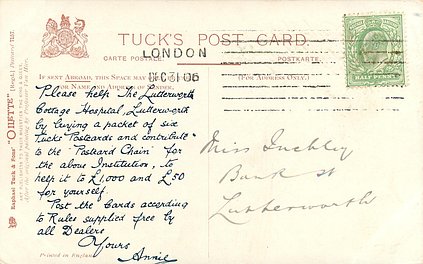 TUCK'S POST CARD
CARTE POSTALE. POSTKARTE.
LONDON
IF SENT ABROAD, THIS SPACE MAY
(FOR ADDRESS ONLY.)
HALF PENNY
Please help The Lutterworth
Cottage Hospital, Lutterworth
by buying a packet of six
Tucks' Postcards and contribute
to the "Postcard Chain" for
the above Institution, to
help it to £1,000 and £50
for yourself.
Post the Cards according
to Rules supplied free by
all Dealers
Yours
Annie
Miss
Bank St
Lutterworth
Raphael Tuck & Sons' "OILETTE" [Regd.]
Printed in England